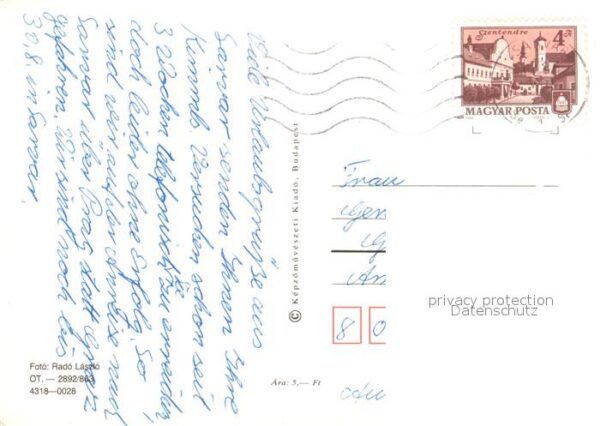 Viele Urlaubsgrüße aus
Sarvar senden Ihnen Ihre
Versuchen schon seit
3 Wochen telefonisch Sie zu erreichen
doch leider ohne Erfolg. So
sind wir auf der Anreise nach
Sarvar über Prag statt
gefahren. Wir sind noch bis
30.8. in Sarvar.
Fotó: Radó László
OT. — 2892/863
4318—0028
© Képzőművészeti Kiadó, Budapest
Ára: 5,— Ft
Szentendre
4 Ft
MAGYAR POSTA
Frau
8 0
privacy protection
Datenschutz